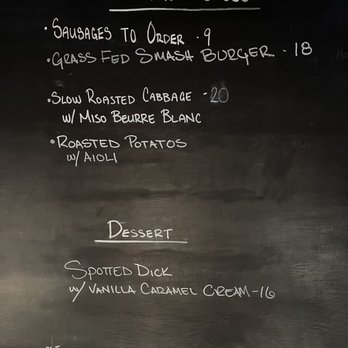 • Sausages to Order • 9
• Grass Fed Smash Burger • 18
• Slow Roasted Cabbage - 20
w/ Miso Beurre Blanc
• Roasted Potatos
w/ Aioli
Dessert
Spotted Dick
w/ Vanilla Caramel Cream - 16